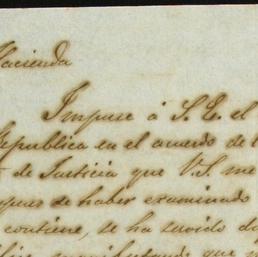 Hacienda
Impuse á S. E. el
Republica en el acuerdo de
de Justicia que V.S. me
de haber examinado
contiene, se ha servido
que